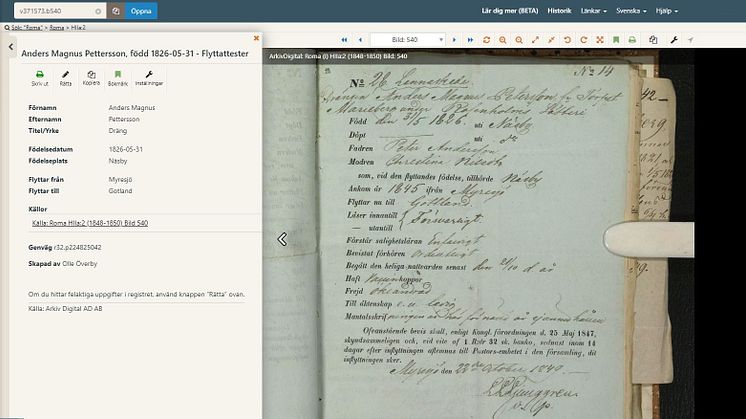 v371573.b540
Öppna
Lär dig mer (BETA) Historik Länkar Svenska Hjälp
Sök: "Roma" > Roma > HIIa:2
Bild: 540
Anders Magnus Pettersson, född 1826-05-31 - Flyttattester
Skriv ut Rätta Kopiera Bokmärk Inställningar
Förnamn Anders Magnus
Efternamn Pettersson
Titel/Yrke Dräng
Födelsedatum 1826-05-31
Födelseplats Näsby
Flyttar från Myresjö
Flyttar till Gotland
Källor
Källa: Roma HIIa:2 (1848-1850) Bild 540
Genväg r32.p224825042
Skapad av Olle Överby
Om du hittar felaktiga uppgifter i registret, använd knappen "Rätta" ovan.
Källa: Arkiv Digital AD AB
ArkivDigital: Roma (I) HIIa:2 (1848-1850) Bild: 540
No 14
No 26
Drängen Anders Magnus Peterson
Född den 31/5 1826. uti Näsby
Döpt uti
Fadren Peter Anderson
Modren Christina
som, vid den flyttandes födelse, tillhörde Näsby
Ankom år 1845 ifrån Myresjö
Flyttar nu till Gottland
Läser innantill Försvarligt
— utantill
Förstår salighetsläran Enfaldigt
Bevistat förhören Ordentligt
Begått den heliga nattvarden senast den 21/10 d. år
Haft koppor
Frejd
Till äktenskap
Mantalsskrifningen
Ofvanstående bevis skall, enligt Kongl. förordningen d. 25 Maj 1847,
skyndsammeligen och, vid vite af 1 R:dr 32 sk. banko, sednast inom 14
dagar efter inflyttningen aflemnas till Pastors-embetet i den församling, dit
inflyttningen sker.
Myresjö den 22 October 1849